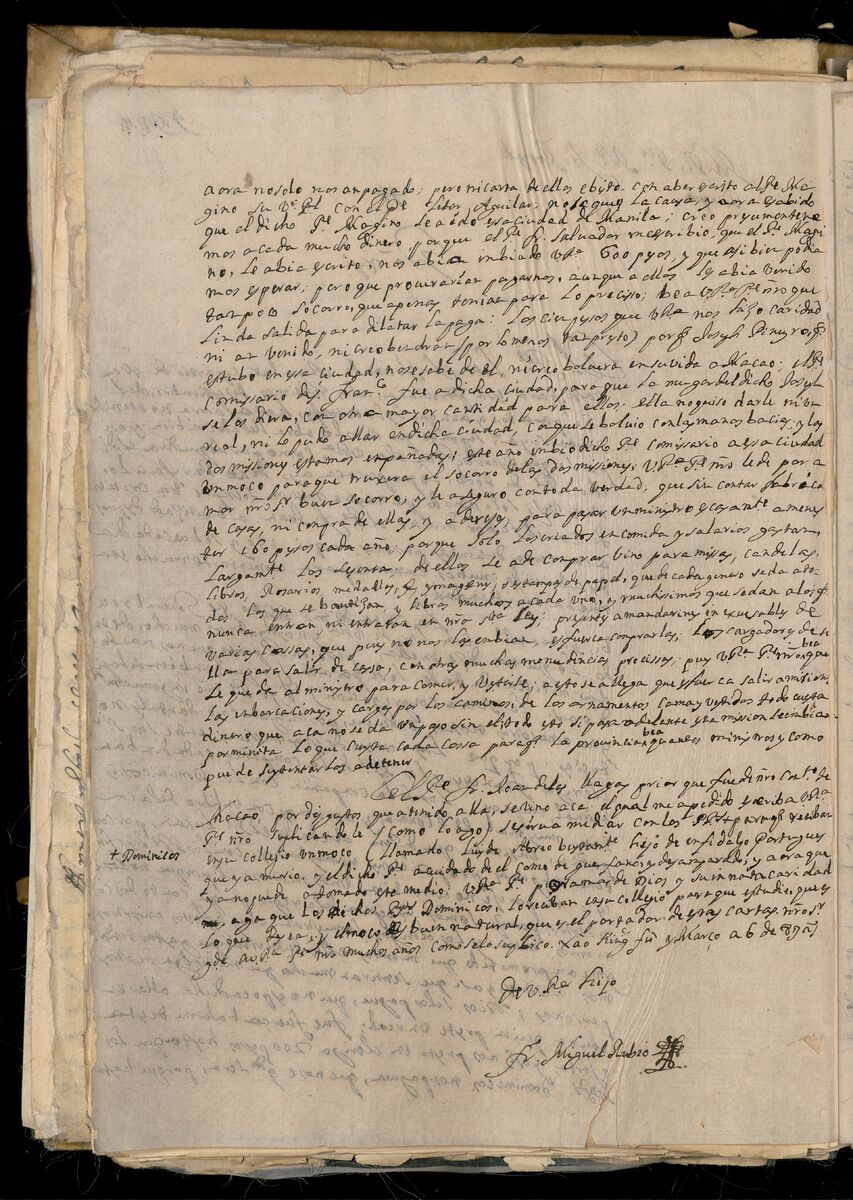 aora no solo nos an pagado; pero ni carta de ellos e bisto con aber escrito al Pe Ma
gino su Vo Pl con el de Sitor Aguilar; no se que es la causa, y aora e sabido
que el dicho Pe Magino se a ido a esa ciudad de Manila; creo
mos aca de mucho dinero porque el Pe fr. Salvador me escribio, que el Pe Magi
no, le abia escrito, nos abia imbiado VRa 600 pesos, y que asi bien podia
mos esperar; pero que procurarian pagarnos, aunque a ellos les abia venido
tan poco socorro, que apenas tenian para lo preciso; bea VRa Pe nro que
linda salida para dilatar la paga: Los cien pesos que VRa nos hizo caridad
ni an venido, ni creo bendran (por lo menos tan presto) porq Joseph Pineyro, q
estubo en esa ciudad, no se sabe de el, ni creo bolvera en su vida a Macao; el Pe
Comissario de S. Franco fue a dicha ciudad, para que la muger del dicho Joseph
se los diera, con otra mayor cantidad para ellos. ella no quiso darle ni un
real, ni lo pudo allar en dicha ciudad, con que se bolvio con las manos bacias, y las
dos misiones estamos enpeñadas; este año imbio dicho Pe Comissario a esa ciudad
un moço para que truxera el socorro de las dos misiones; VRa Pe nro le de por a
mor nro Sr buen socorro; y le aseguro con toda verdad, que sin contar fabrica
de casas, ni compra de ellas, y adereso, para pasar un ministro es necesario a menes
ter 160 pesos cada año: porque solo los criados en comida y salarios gastan
largamte los sesenta. de ellos se a de comprar vino para misas, candelas,
libros, Rosarios, medallas, e ymagenes, o estampas de papel, que de cada genero se da a to
dos los que se bautizan, y libros muchos a cada uno, y muchissimos que se dan a los q
nunca entran, ni entraran en nra Sta ley; presentes a mandarines inexcusables de
varias cossas, que pues no nos las enbian, es fuerça comprarlas; los cargadores de si
lla para salir de casa, con otras muchas menudencias precissas; pues VRa Pe nro bea que
le queda al ministro para comer, y vestirse; a esto se allega que es fuerça salir a mision
las enbarcaciones, y cargas por los caminos, de los ornamentos cama y vestidos todo cuesta
dinero que aca no se da un paso sin el; todo esto si pasa adelante esta mision le imbia
por minuta lo que cuesta cada cossa para q la provincia bea quantos ministros y como
puede sustentarlos a de tener
El Pe Fr. Joan de las Llagas prior que fue de nro Conto de
Macao, por disgustos que a tenido alla, se vino aca: el qual me a pedido escriba VRa
Pe nro suplicandole (como lo ago) se sirva mediar con los PPes + para q reciban
en su collegio un moço (llamado Luys de Abreu bustante hijo de un fidalgo Portugues
que ya murio. y el dicho Pe a cuidado de el como de guerfano, y desamparado, y aora que
ya no puede a tomado este medio. VRa Pe por amor de Dios y su innata caridad
aga que los dichos PPes Dominicos, lo reciban en su collegio para que estudie, que es
lo que desea; y el moço es buen natural, que es el portador de estas cartas. nro Sr
gde a VRa Pe nro muchos años como se lo suplico. Xao King fu y Março a 6 de 87 as
+ Dominicos
De V. Ra Hijo
fr. Miguel Rubio